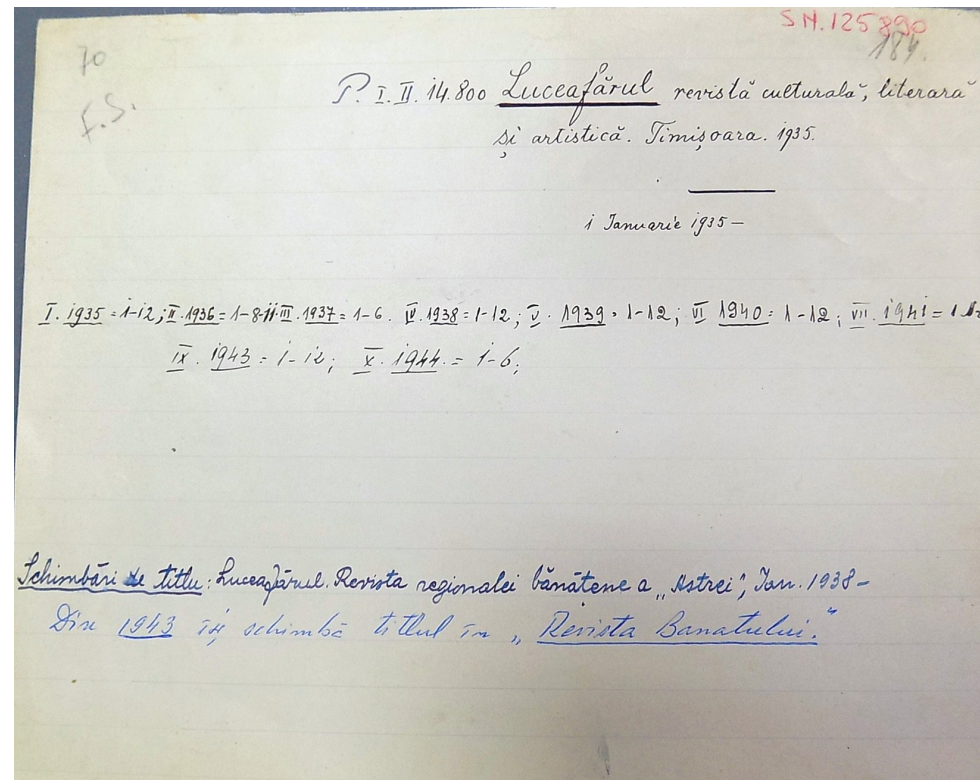 S N. 125890
70
184.
F.S.
P. I. II. 14.800 Luceafărul revistă culturală, literară
și artistică. Timișoara. 1935.
1 Ianuarie 1935 –
I. 1935 = 1-12; II. 1936 = 1-8-11 III. 1937 = 1-6. IV. 1938 = 1-12; V. 1939 = 1-12; VI 1940 = 1-12; VII. 1941 = 1-12
IX. 1943 = 1-12; X. 1944. = 1-6;
Schimbări de titlu: Luceafărul. Revista regionalei bănățene a „Astrei”, Ian. 1938 –
Din 1943 își schimbă titlul în „Revista Banatului.”